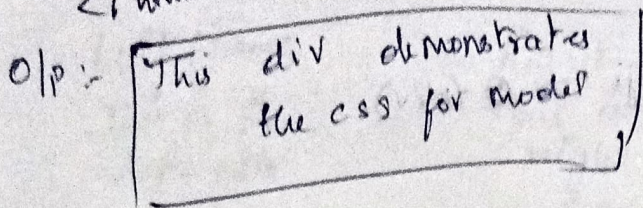 O/p :- This div demonstrates
the css for model